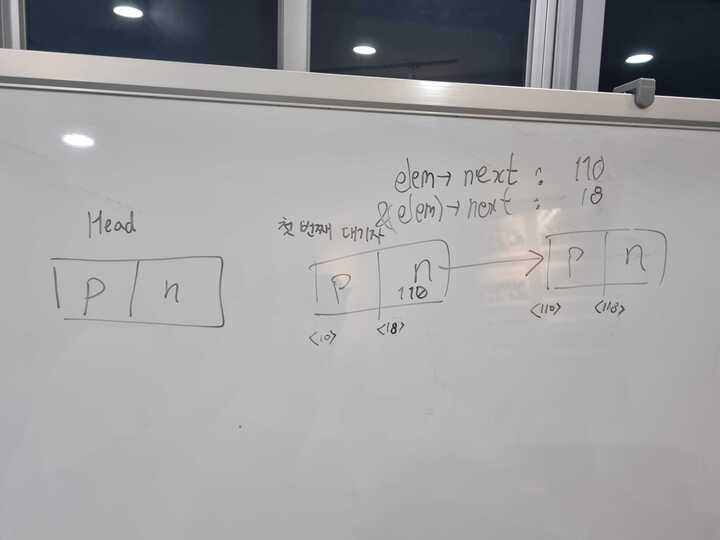 elem→ next : 110
&(elem)→ next : 18
Head
첫 번째 대기자
p n
p n
110
p n
<10> <18>
<110> <118>